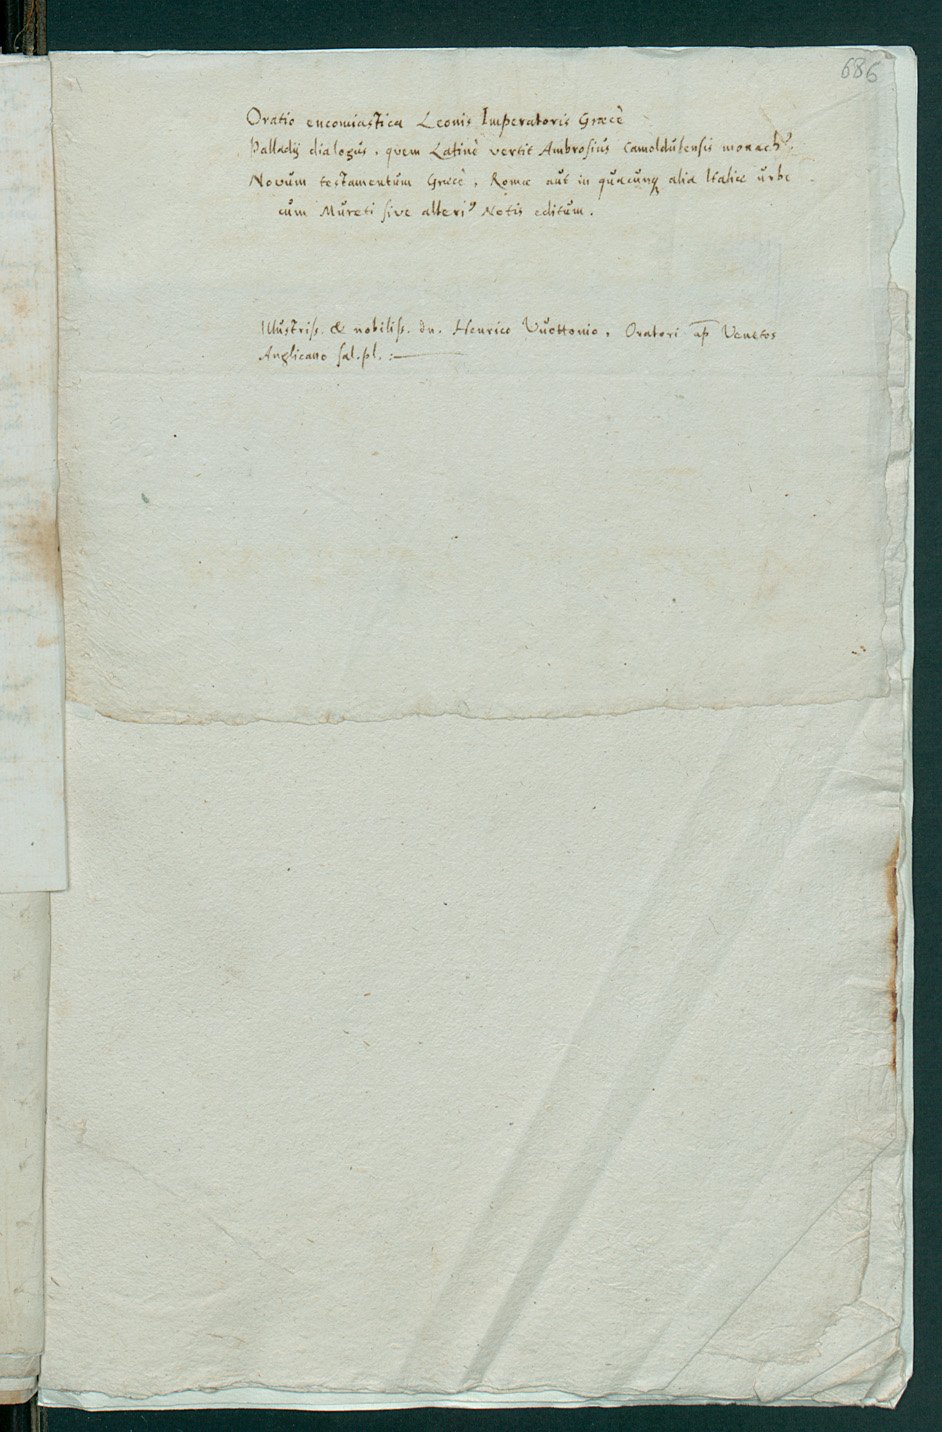 686
Oratio encomiastica Leonis Imperatoris Græcè
Palladij dialogus, quem Latinè vertit Ambrosius Camoldulensis monachꝰ.
Novum testamentum Græcè, Romæ aut in quacunqꝫ alia Italiæ urbe
cum Mureti sive alteriꝰ Notis editum.
Illustriss. & nobiliss. dn. Henrico Vuottonio, Oratori ap̄ Venetos
Anglicano sal. pl. :—